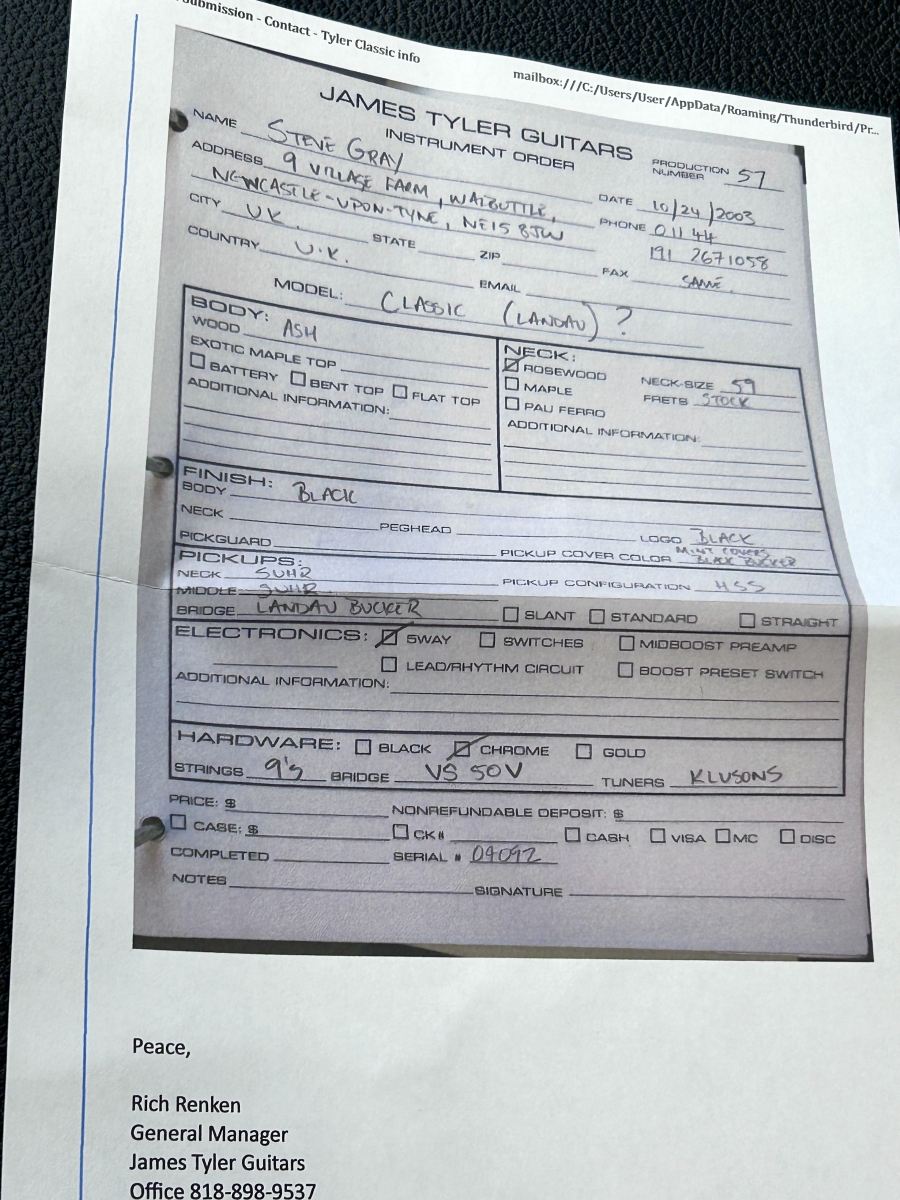 ubmission - Contact - Tyler Classic info
mailbox:///C:/Users/User/AppData/Roaming/Thunderbird/Pr...
JAMES TYLER GUITARS
INSTRUMENT ORDER
PRODUCTION NUMBER 57
NAME STEVE GRAY
DATE 10/24/2003
ADDRESS 9 VILLAGE FARM, WALBOTTLE,
PHONE 011 44
NEWCASTLE-UPON-TYNE, NE15 8JW
191 2671058
CITY UK. STATE ZIP FAX SAME.
COUNTRY U.K. EMAIL
MODEL: CLASSIC (LANDAU) ?
BODY:
WOOD ASH
EXOTIC MAPLE TOP
BATTERY BENT TOP FLAT TOP
ADDITIONAL INFORMATION:
NECK:
ROSEWOOD NECK-SIZE 59
MAPLE FRETS STOCK
PAU FERRO
ADDITIONAL INFORMATION:
FINISH:
BODY BLACK
NECK PEGHEAD LOGO BLACK
PICKGUARD PICKUP COVER COLOR MINT COVERS
BLACK BUCKER
PICKUPS:
NECK SUHR PICKUP CONFIGURATION HSS
MIDDLE SUHR
BRIDGE LANDAU BUCKER SLANT STANDARD STRAIGHT
ELECTRONICS: 5WAY SWITCHES MIDBOOST PREAMP
LEAD/RHYTHM CIRCUIT BOOST PRESET SWITCH
ADDITIONAL INFORMATION:
HARDWARE: BLACK CHROME GOLD
STRINGS 9's BRIDGE VS 50V TUNERS KLUSONS
PRICE: $ NONREFUNDABLE DEPOSIT: $
CASE: $ CK# CASH VISA MC DISC
COMPLETED SERIAL # 04092
NOTES SIGNATURE
Peace,
Rich Renken
General Manager
James Tyler Guitars
Office 818-898-9537